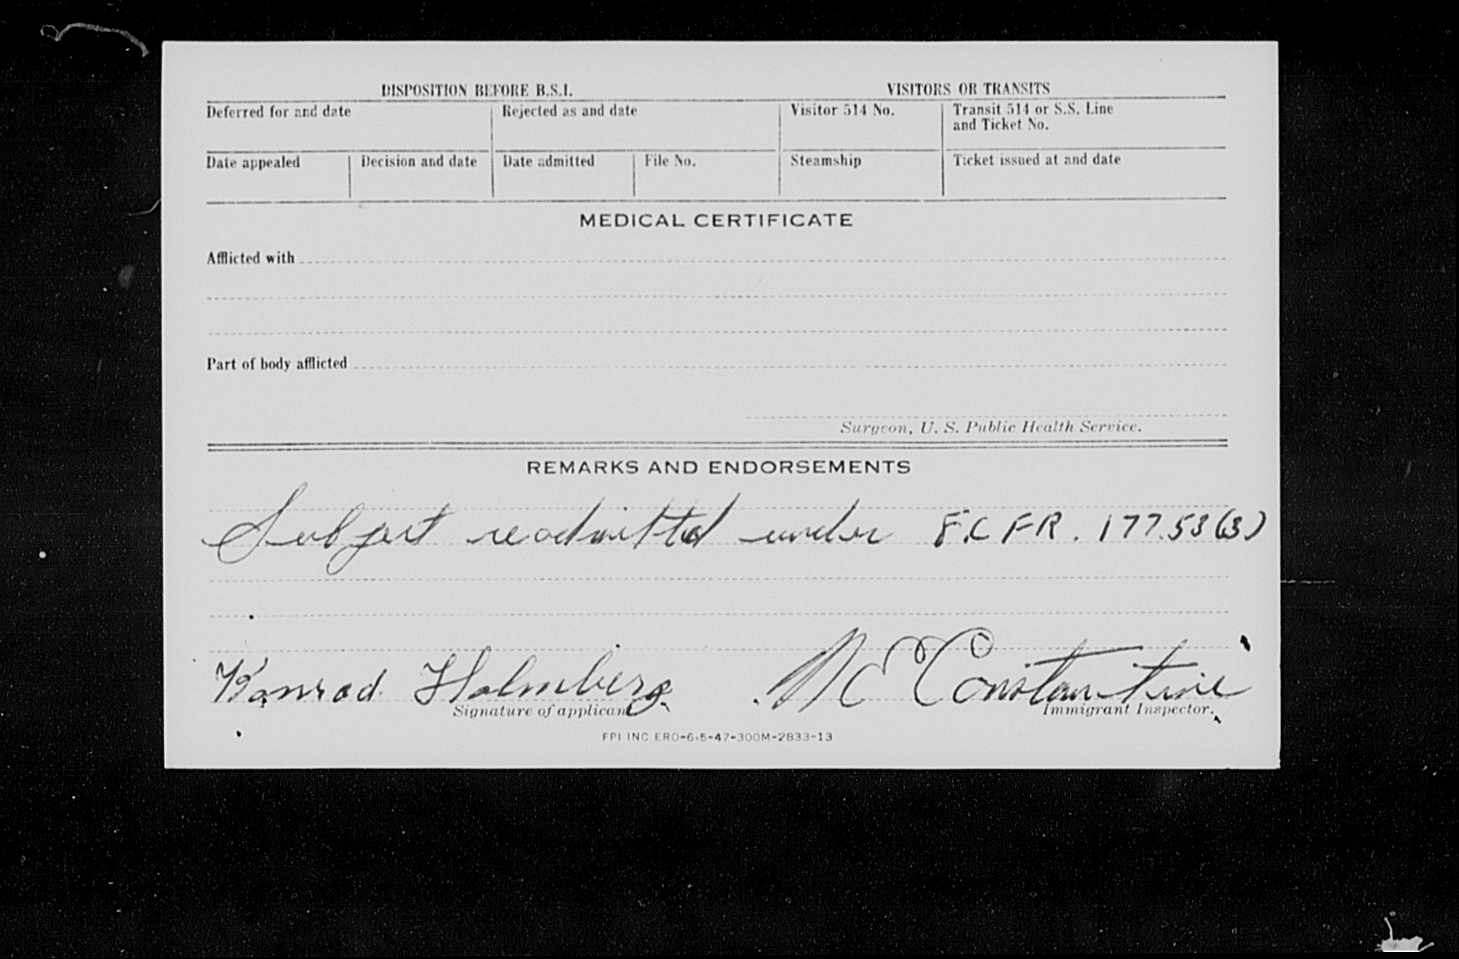 DISPOSITION BEFORE B.S.I. VISITORS OR TRANSITS
Deferred for and date Rejected as and date Visitor 514 No. Transit 514 or S.S. Line
and Ticket No.
Date appealed Decision and date Date admitted File No. Steamship Ticket issued at and date
MEDICAL CERTIFICATE
Afflicted with
Part of body afflicted
Surgeon, U. S. Public Health Service.
REMARKS AND ENDORSEMENTS
Subject readmitted under 8.CFR. 177.53(3)
Konrad Holmberg. N E Constantine
Signature of applicant. Immigrant Inspector.
FPI INC ERO-6-5-47-300M-2833-13